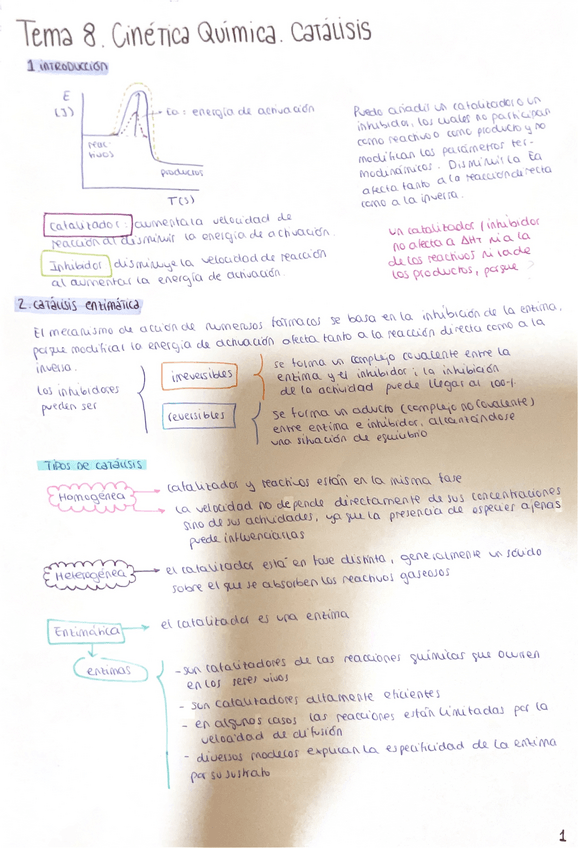 Tema 8. Cinética Química. Catálisis
1 INTRODUCCIÓN
E
(J)
Ea: energía de activación
reac-
tivos
productos
T(s)
Puedo añadir un catalizador o un
inhibidor, los cuales no participan
como reactivo o como producto y no
modifican los parámetros ter-
modinámicos. Disminuir la Ea
afecta tanto a la reacción directa
como a la inversa.
Catalizador: aumenta la velocidad de
reacción al disminuir la energía de activación.
Inhibidor: disminuye la velocidad de reacción
al aumentar la energía de activación.
un catalizador / inhibidor
no afecta a ΔHr ni a la
de los reactivos ni la de
los productos, porque
2. CATÁLISIS ENZIMÁTICA
El mecanismo de acción de numerosos fármacos se basa en la inhibición de la enzima,
porque modificar la energía de activación afecta tanto a la reacción directa como a la
inversa.
los inhibidores
pueden ser
irreversibles
se forma un complejo covalente entre la
enzima y el inhibidor; la inhibición
de la actividad puede llegar al 100%
reversibles
se forma un aducto (complejo no covalente)
entre enzima e inhibidor, alcanzándose
una situación de equilibrio
TIPOS DE CATÁLISIS
Homogénea
catalizador y reactivos están en la misma fase
la velocidad no depende directamente de sus concentraciones
sino de sus actividades, ya que la presencia de especies ajenas
puede influenciarlas
Heterogénea
el catalizador está en fase distinta, generalmente un sólido
sobre el que se absorben los reactivos gaseosos
Enzimática
el catalizador es una enzima
enzimas
- son catalizadores de las reacciones químicas que ocurren
en los seres vivos
- son catalizadores altamente eficientes
- en algunos casos las reacciones están limitadas por la
velocidad de difusión
- diversos modelos explican la especificidad de la enzima
por su sustrato
1